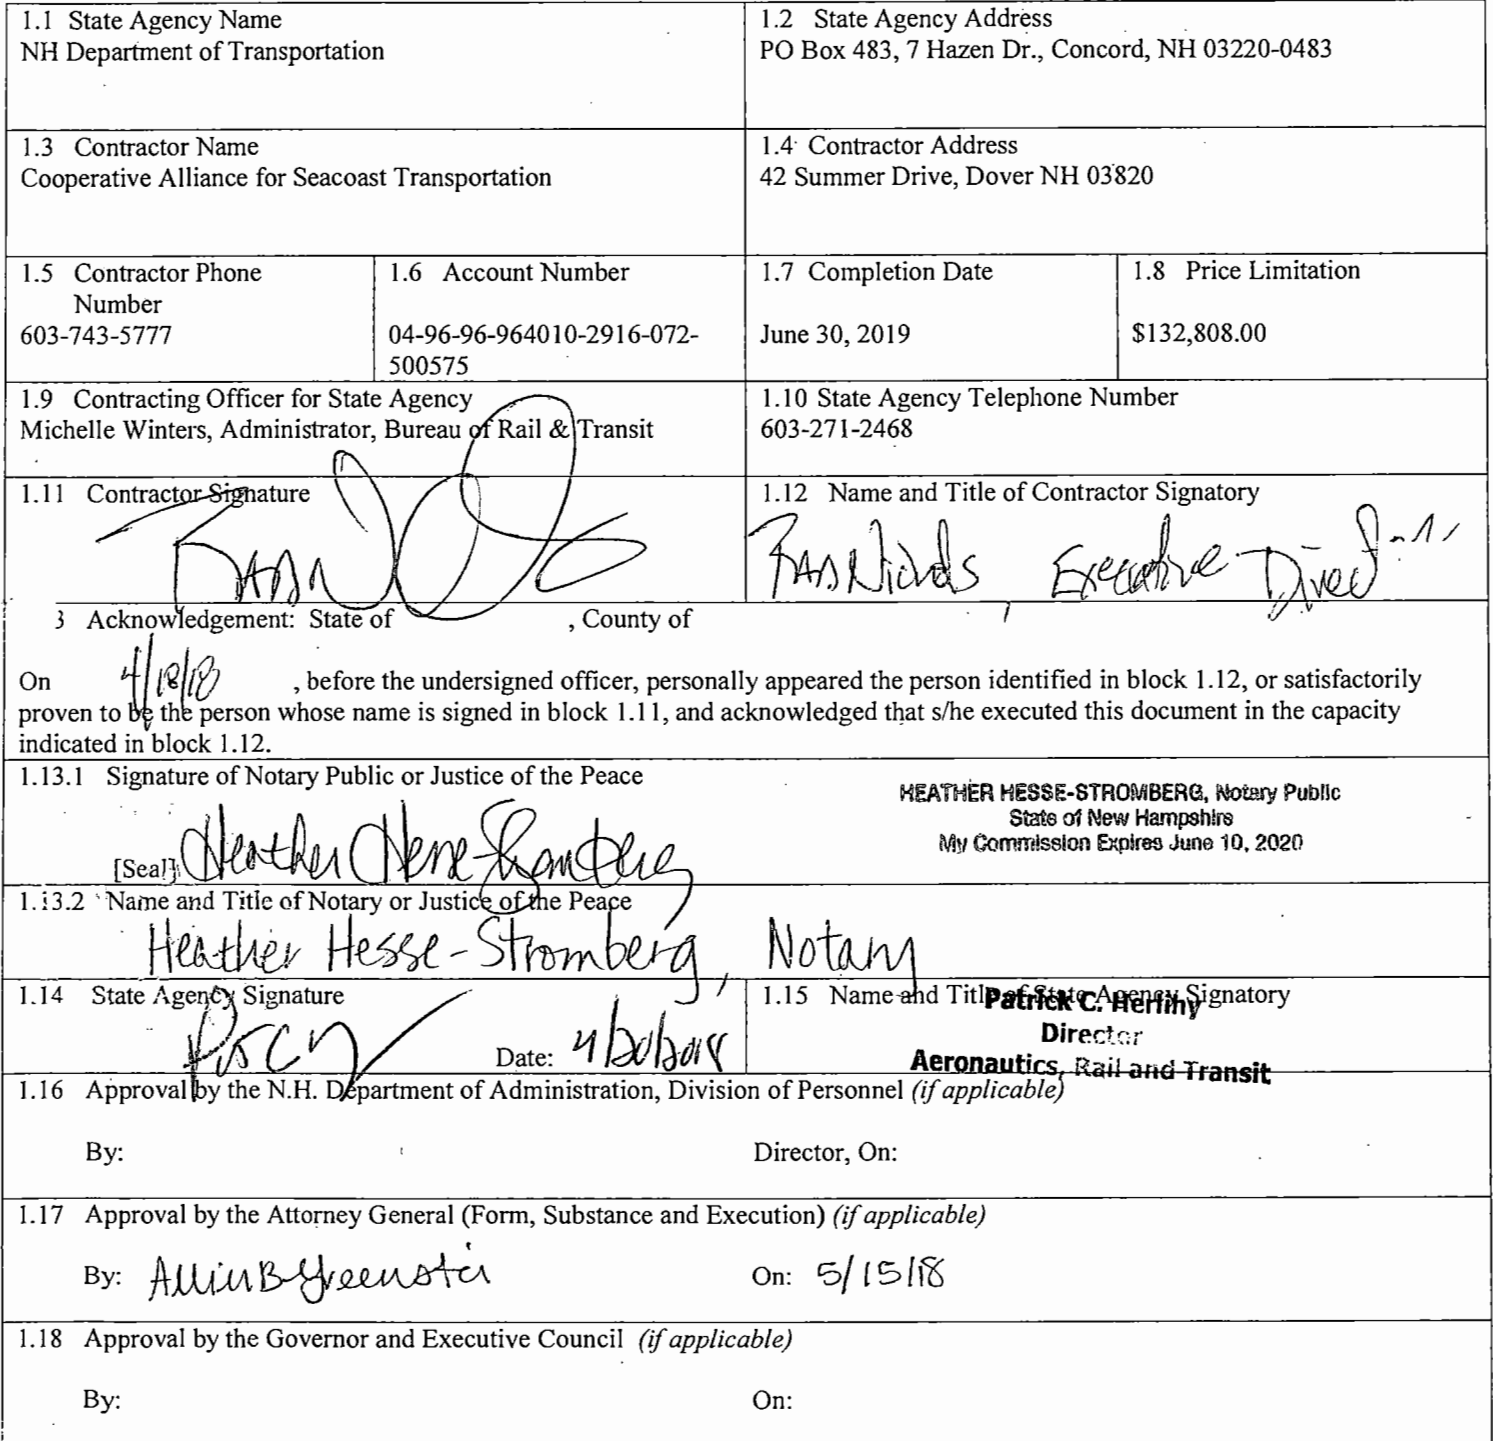 1.1 State Agency Name
NH Department of Transportation
1.2 State Agency Address
PO Box 483, 7 Hazen Dr., Concord, NH 03220-0483
1.3 Contractor Name
Cooperative Alliance for Seacoast Transportation
1.4 Contractor Address
42 Summer Drive, Dover NH 03820
1.5 Contractor Phone
Number
603-743-5777
1.6 Account Number
04-96-96-964010-2916-072-
500575
1.7 Completion Date
June 30, 2019
1.8 Price Limitation
$132,808.00
1.9 Contracting Officer for State Agency
Michelle Winters, Administrator, Bureau of Rail & Transit
1.10 State Agency Telephone Number
603-271-2468
1.11 Contractor Signature
1.12 Name and Title of Contractor Signatory
Rad Nichols, Executive Director
3 Acknowledgement: State of , County of
On 4/18/18 , before the undersigned officer, personally appeared the person identified in block 1.12, or satisfactorily
proven to be the person whose name is signed in block 1.11, and acknowledged that s/he executed this document in the capacity
indicated in block 1.12.
1.13.1 Signature of Notary Public or Justice of the Peace
HEATHER HESSE-STROMBERG, Notary Public
State of New Hampshire
My Commission Expires June 10, 2020
[Seal] Heather Hesse-Stromberg
1.13.2 Name and Title of Notary or Justice of the Peace
Heather Hesse-Stromberg, Notary
1.14 State Agency Signature
Date: 4/20/2018
1.15 Name and Title of State Agency Signatory
Patrick C. Herlihy
Director
Aeronautics, Rail and Transit
1.16 Approval by the N.H. Department of Administration, Division of Personnel (if applicable)
By: Director, On:
1.17 Approval by the Attorney General (Form, Substance and Execution) (if applicable)
By: Allison B Greenstein On: 5/15/18
1.18 Approval by the Governor and Executive Council (if applicable)
By: On: